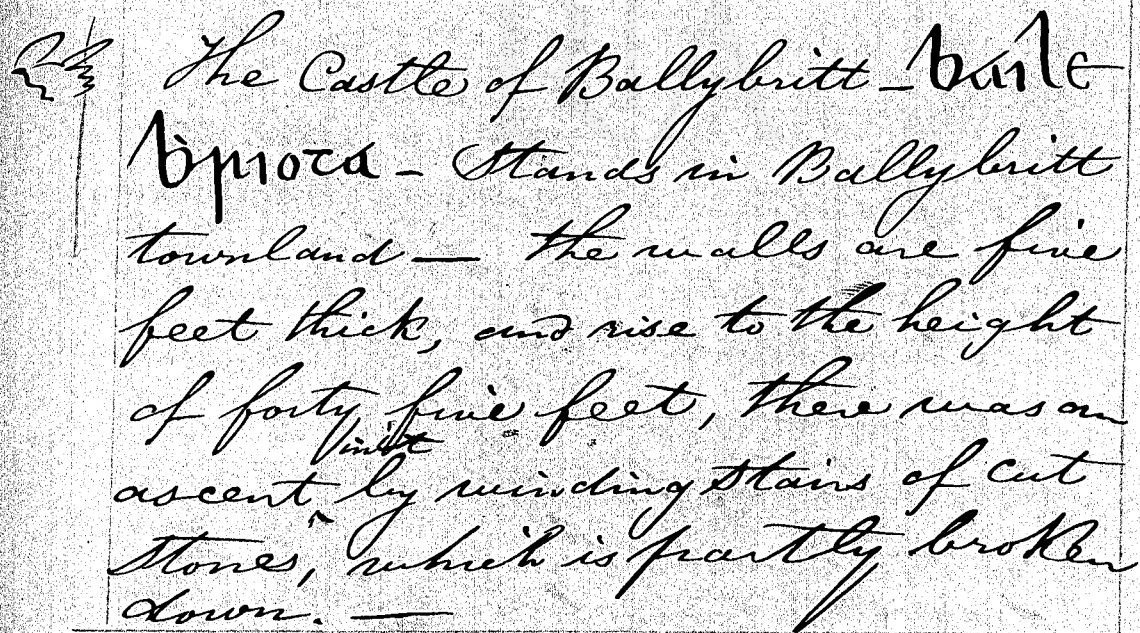 The Castle of Ballybritt – baile
ḃriota – Stands in Ballybritt
townland — the walls are five
feet thick, and rise to the height
of forty five feet, there was an
in it
ascent ‸ by winding stairs of cut
stones, which is partly broken
down. —